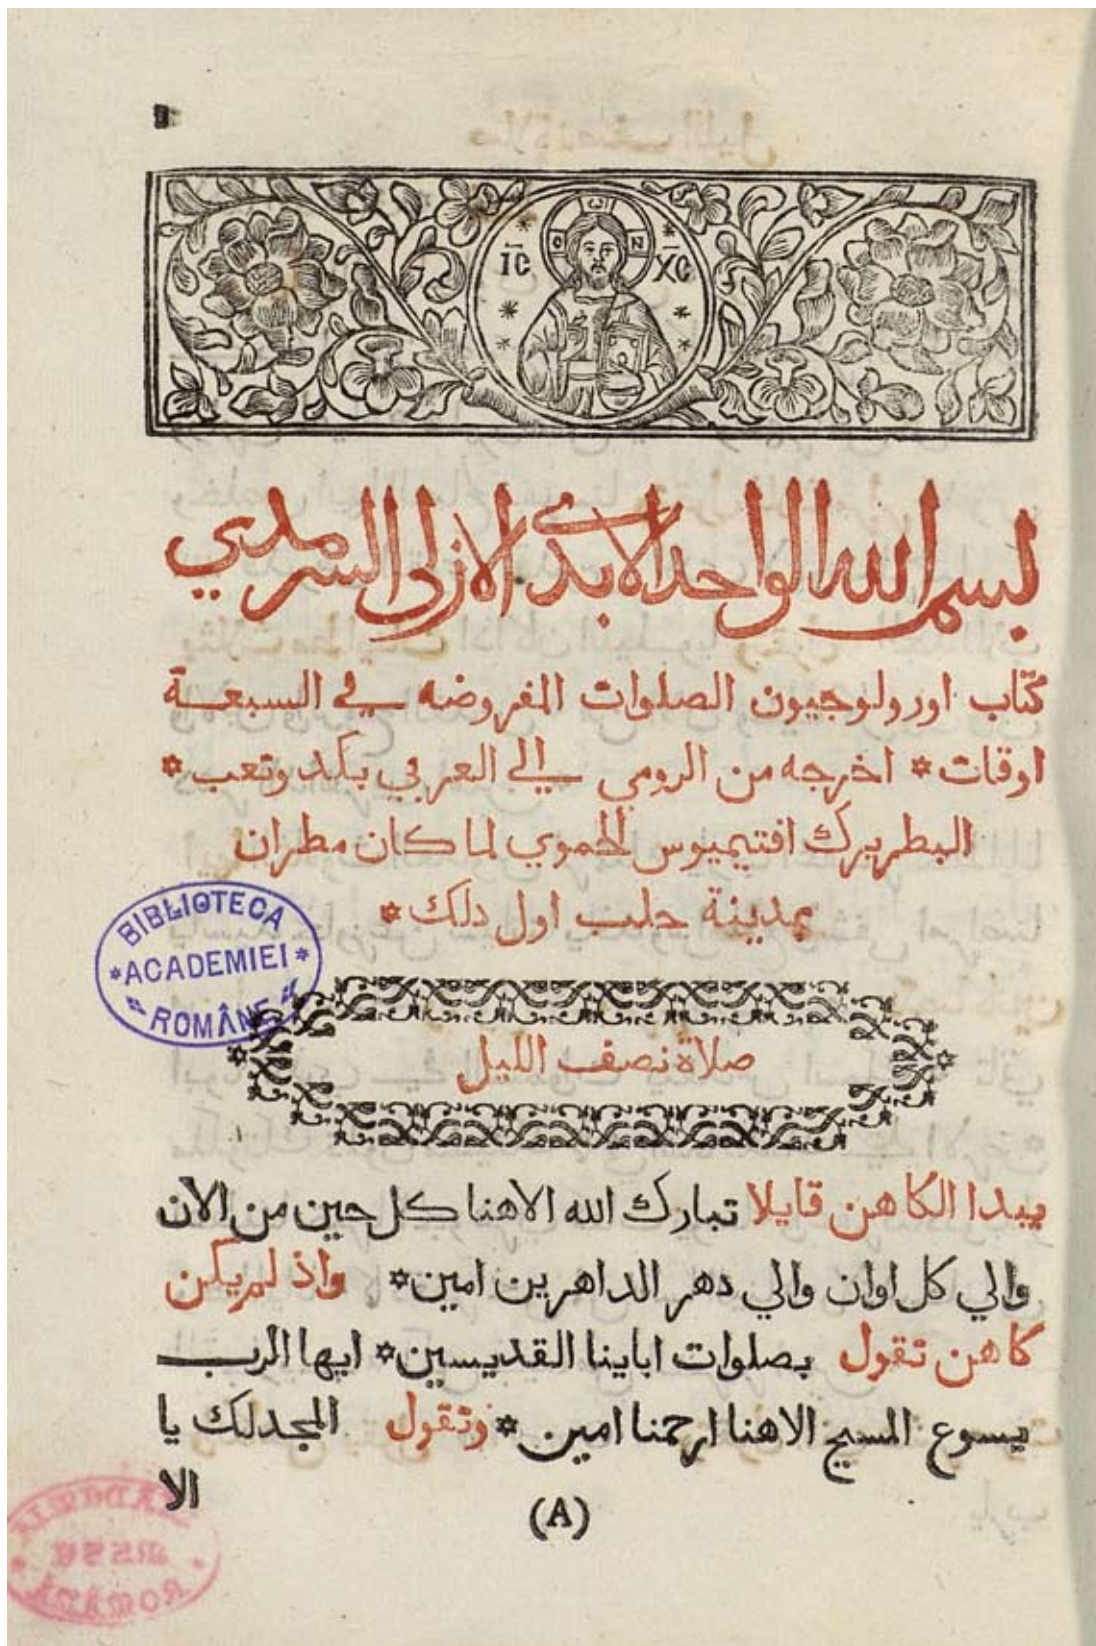 ١
ΙC XC
Ο Ω Ν
بسم الله الواحد الابدي الازلي السرمدي
كتاب اورولوجيون الصلوات المفروضه في السبعة
اوقات * اخرجه من الرومي الي العربي بكد وتعب *
البطريرك افتيميوس الحموي لما كان مطران
بمدينة حلب اول دلك *
BIBLIOTECA
*ACADEMIEI*
ROMÂNE
صلاة نصف الليل
يبدا الكاهن قايلا تبارك الله الاهنا كل حين من الان
والي كل اوان والي دهر الداهرين امين * واذ لم يكن
كاهن تقول بصلوات اباينا القديسين * ايها الرب
يسوع المسيح الاهنا ارحمنا امين * وتقول المجد لك يا
الا
(A)